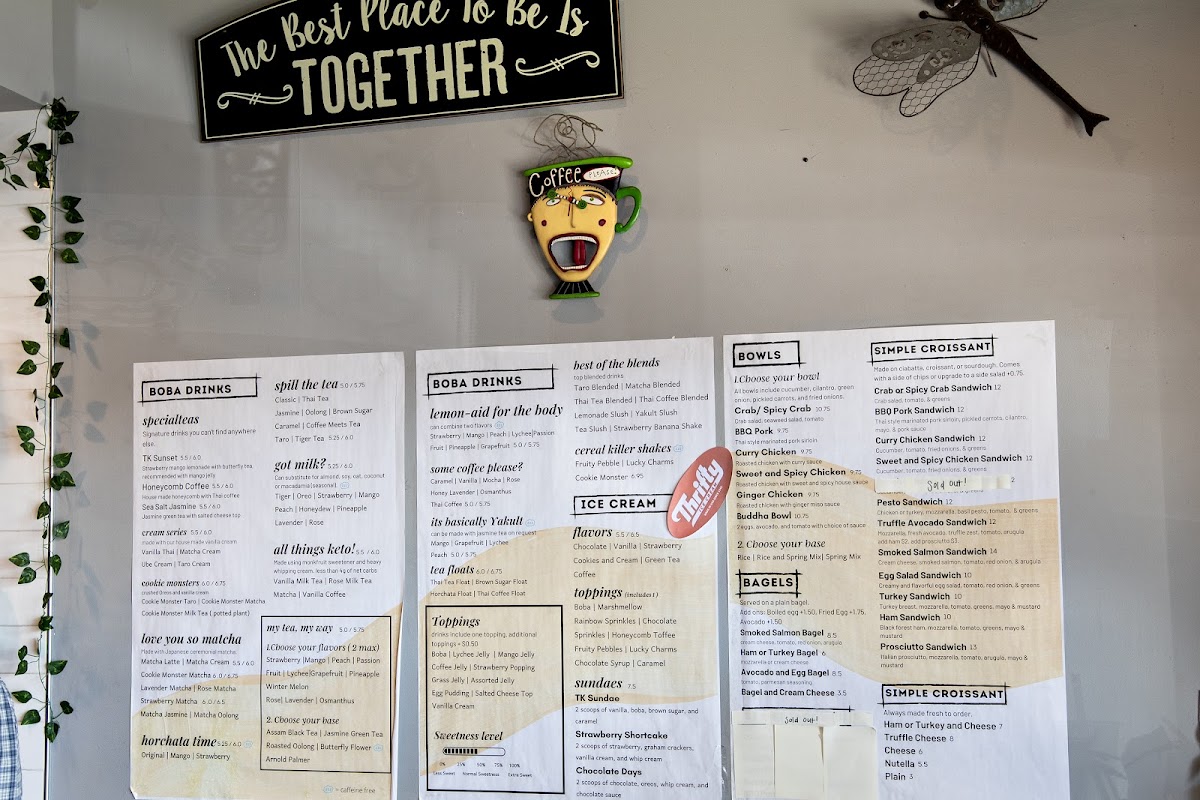 The Best Place To Be Is
TOGETHER
Coffee
PLEASE!
BOBA DRINKS
specialteas
Signature drinks you can't find anywhere
else.
TK Sunset 5.5 / 6.0
Strawberry mango lemonade with butterfly tea,
recommended with mango jelly
Honeycomb Coffee 5.5 / 6.0
House made honeycomb with Thai coffee
Sea Salt Jasmine 5.5 / 6.0
Jasmine green tea with salted cheese top
cream series 5.5 / 6.0
made with our house made vanilla cream
Vanilla Thai | Matcha Cream
Ube Cream | Taro Cream
cookie monsters 6.0 / 6.75
crushed Oreo and vanilla cream
Cookie Monster Taro | Cookie Monster Matcha
Cookie Monster Milk Tea ( potted plant)
love you so matcha
Made with Japanese ceremonial matcha.
Matcha Latte | Matcha Cream 5.5 / 6.0
Cookie Monster Matcha 6.0 / 6.75
Lavender Matcha | Rose Matcha
Strawberry Matcha 6.0 / 6.5
Matcha Jasmine | Matcha Oolong
horchata time 5.25 / 6.0
Original | Mango | Strawberry
spill the tea 5.0 / 5.75
Classic | Thai Tea
Jasmine | Oolong | Brown Sugar
Caramel | Coffee Meets Tea
Taro | Tiger Tea 5.25 / 6.0
got milk? 5.25 / 6.0
Can substitute for almond, soy, oat, coconut
or macadamia(seasonal).
Tiger | Oreo | Strawberry | Mango
Peach | Honeydew | Pineapple
Lavender | Rose
all things keto! 5.5 / 6.0
Made using monkfruit sweetener and heavy
whipping cream, less than 4g of net carbs
Vanilla Milk Tea | Rose Milk Tea
Matcha | Vanilla Coffee
my tea, my way 5.0 / 5.75
1.Choose your flavors ( 2 max)
Strawberry |Mango | Peach | Passion
Fruit | Lychee|Grapefruit | Pineapple
Winter Melon
Rose| Lavender | Osmanthus
2. Choose your base
Assam Black Tea | Jasmine Green Tea
Roasted Oolong | Butterfly Flower
Arnold Palmer
= caffeine free
BOBA DRINKS
lemon-aid for the body
can combine two flavors
Strawberry | Mango | Peach | Lychee|Passion
Fruit | Pineapple | Grapefruit 5.0 / 5.75
some coffee please?
Caramel | Vanilla | Mocha | Rose
Honey Lavender | Osmanthus
Thai Coffee 5.0 / 5.75
its basically Yakult
can be made with jasmine tea on request
Mango | Grapefruit | Lychee
Peach 5.0 / 5.75
tea floats 6.0 / 6.75
Thai Tea Float | Brown Sugar Float
Horchata Float | Thai Coffee Float
Toppings
drinks include one topping, additional
toppings +$0.50
Boba | Lychee Jelly | Mango Jelly
Coffee Jelly | Strawberry Popping
Grass Jelly | Assorted Jelly
Egg Pudding | Salted Cheese Top
Vanilla Cream
Sweetness level
0% 25% 50% 75% 100%
Less Sweet Normal Sweetness Extra Sweet
best of the blends
top blended drinks
Taro Blended | Matcha Blended
Thai Tea Blended | Thai Coffee Blended
Lemonade Slush | Yakult Slush
Tea Slush | Strawberry Banana Shake
cereal killer shakes
Fruity Pebble | Lucky Charms
Cookie Monster 6.95
ICE CREAM
Thrifty
ICE CREAM
flavors 5.5 / 6.5
Chocolate | Vanilla | Strawberry
Cookies and Cream | Green Tea
Coffee
toppings (includes 1 )
Boba | Marshmellow
Rainbow Sprinkles | Chocolate
Sprinkles | Honeycomb Toffee
Fruity Pebbles | Lucky Charms
Chocolate Syrup | Caramel
sundaes 7.5
TK Sundae
2 scoops of vanilla, boba, brown sugar, and
caramel
Strawberry Shortcake
2 scoops of strawberry, graham crackers,
vanilla cream, and whip cream
Chocolate Days
2 scoops of chocolate, oreos, whip cream, and
chocolate sauce
BOWLS
1.Choose your bowl
All bowls include cucumber, cilantro, green
onion, pickled carrots, and fried onions.
Crab/ Spicy Crab 10.75
Crab salad, seaweed salad, tomato
BBQ Pork 9.75
Thai style marinated pork sirloin
Curry Chicken 9.75
Roasted chicken with curry sauce
Sweet and Spicy Chicken 9.75
Roasted chicken with sweet and spicy house sauce
Ginger Chicken 9.75
Roasted chicken with ginger miso sauce
Buddha Bowl 10.75
2 eggs, avocado, and tomato with choice of sauce
2. Choose your base
Rice | Rice and Spring Mix| Spring Mix
BAGELS
Served on a plain bagel.
Add ons: Boiled egg +1.50, Fried Egg +1.75,
Avocado +1.50
Smoked Salmon Bagel 8.5
cream cheese, tomato, red onion, arugula
Ham or Turkey Bagel 6
mozzarella or cream cheese
Avocado and Egg Bagel 8.5
tomato, parmesan seasoning
Bagel and Cream Cheese 3.5
Sold out!
SIMPLE CROISSANT
Made on ciabatta, croissant, or sourdough. Comes
with a side of chips or upgrade to a side salad +0.75.
Crab or Spicy Crab Sandwich 12
Crab salad, tomato, & greens
BBQ Pork Sandwich 12
Thai style marinated pork sirloin, pickled carrots, cilantro,
mayo, & pork sauce
Curry Chicken Sandwich 12
Cucumber, tomato, fried onions, & greens
Sweet and Spicy Chicken Sandwich 12
Cucumber, tomato, fried onions, & greens
Sold out!
Pesto Sandwich 12
Chicken or turkey, mozzarella, basil pesto, tomato, & greens
Truffle Avocado Sandwich 12
Mozzarella, fresh avocado, truffle zest, tomato, arugula
add ham $2, add prosciutto $3
Smoked Salmon Sandwich 14
Cream cheese, smoked salmon, tomato, red onion, & arugula
Egg Salad Sandwich 10
Creamy and flavorful egg salad, tomato, red onion, & greens
Turkey Sandwich 10
Turkey breast, mozzarella, tomato, greens, mayo & mustard
Ham Sandwich 10
Black forest ham, mozzarella, tomato, greens, mayo &
mustard
Prosciutto Sandwich 13
Italian prosciutto, mozzarella, tomato, arugula, mayo &
mustard
SIMPLE CROISSANT
Always made fresh to order.
Ham or Turkey and Cheese 7
Truffle Cheese 8
Cheese 6
Nutella 5.5
Plain 3